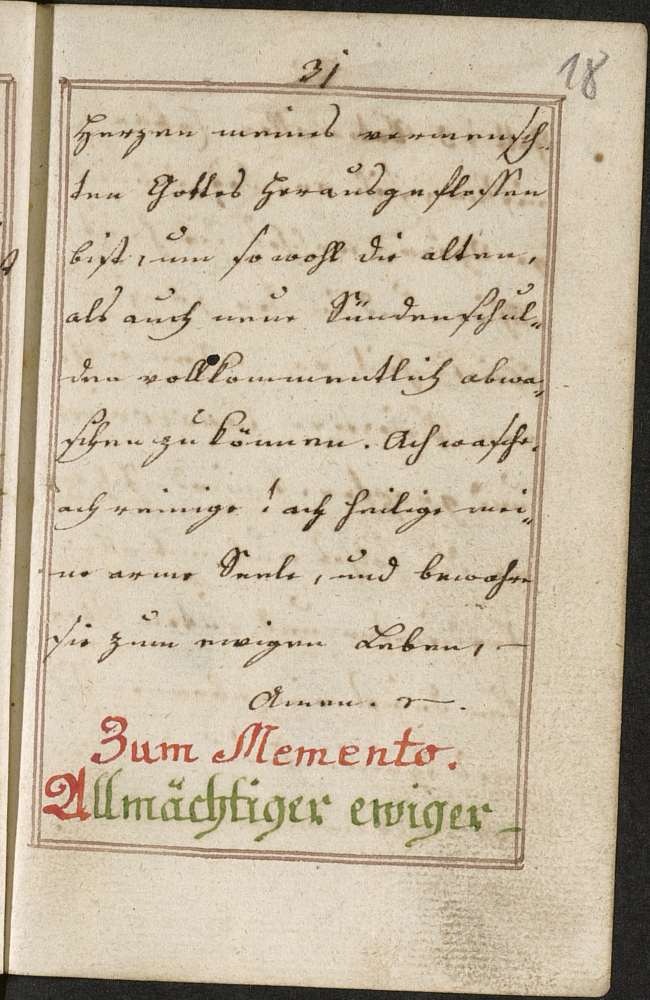 31
18
Herzen meines vermensch-
ten Gottes herausgeflossen
bist, um sowohl die alten,
als auch neue Sündenschul„
den vollkommentlich abwa„
schen zu können. Ach wasche,
ach reinige! ach heilige mei„
ne arme Seele, und bewahre
sie zum ewigen Leben, –
Amen.
Zum Memento.
Allmächtiger ewiger –